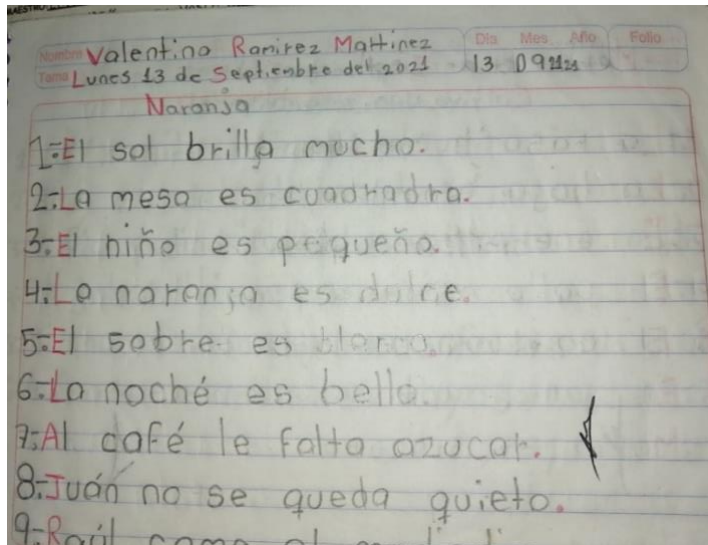 MAESTRO
Nombre Valentina Ramirez Martinez Dia Mes Año Folio
Tema Lunes 13 de Septiembre del 2021 13 09 2021
Naranja
1:-El sol brilla mucho.
2:-La mesa es cuadradra.
3:-El niño es pequeño.
4:-La naranja es dulce.
5:-El sobre es blanco.
6:-La noché es bella.
7:-Al café le falta azucar.
8:-Juán no se queda quieto.
9-Raúl como el